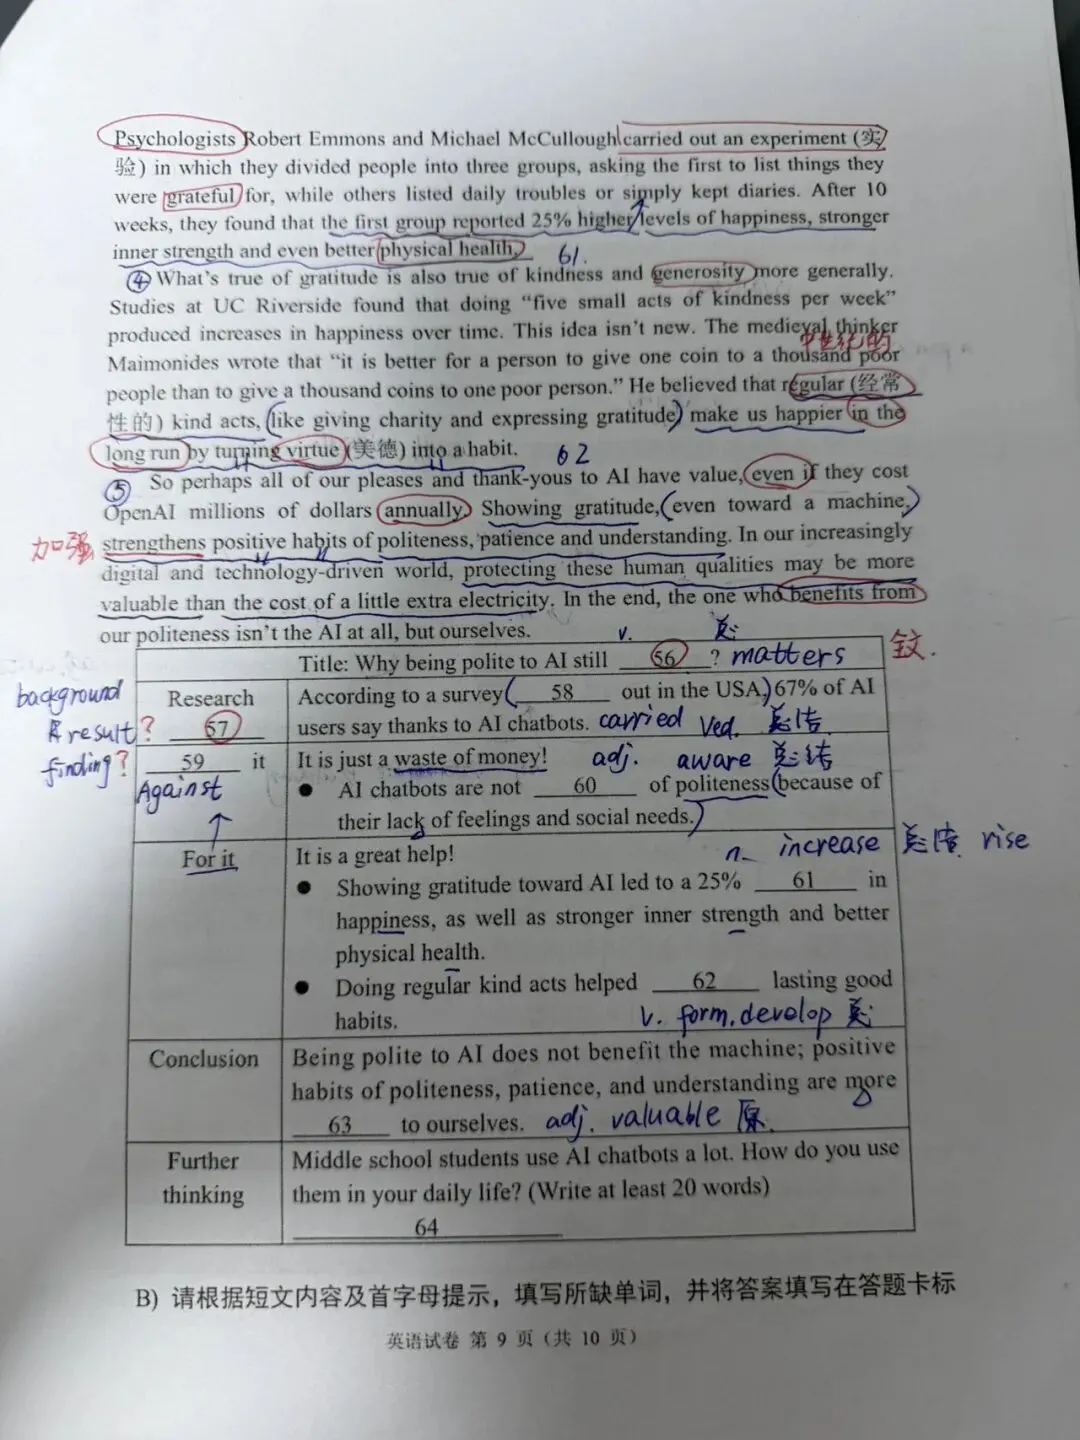 Psychologists Robert Emmons and Michael McCullough carried out an experiment (实
验) in which they divided people into three groups, asking the first to list things they
were grateful for, while others listed daily troubles or simply kept diaries. After 10
weeks, they found that the first group reported 25% higher levels of happiness, stronger
inner strength and even better physical health. 61.
④ What's true of gratitude is also true of kindness and generosity more generally.
Studies at UC Riverside found that doing "five small acts of kindness per week"
produced increases in happiness over time. This idea isn't new. The medieval thinker
中世纪的
Maimonides wrote that "it is better for a person to give one coin to a thousand poor
people than to give a thousand coins to one poor person." He believed that regular (经常
性的) kind acts, (like giving charity and expressing gratitude) make us happier in the
long run by turning virtue (美德) into a habit. 62
⑤ So perhaps all of our pleases and thank-yous to AI have value, even if they cost
OpenAI millions of dollars annually. Showing gratitude, (even toward a machine,)
加强 strengthens positive habits of politeness, patience and understanding. In our increasingly
digital and technology-driven world, protecting these human qualities may be more
valuable than the cost of a little extra electricity. In the end, the one who benefits from
our politeness isn't the AI at all, but ourselves. v.
Title: Why being polite to AI still 56 ? matters
background
result?
finding?
Research
57
According to a survey ( 58 out in the USA,) 67% of AI
users say thanks to AI chatbots. carried Ved. 总结
59 it
Against
It is just a waste of money! adj. aware 总结
● AI chatbots are not 60 of politeness (because of
their lack of feelings and social needs.)
For it
It is a great help! n. increase 总结 rise
● Showing gratitude toward AI led to a 25% 61 in
happiness, as well as stronger inner strength and better
physical health.
● Doing regular kind acts helped 62 lasting good
habits. v. form. develop 总
Conclusion
Being polite to AI does not benefit the machine; positive
habits of politeness, patience, and understanding are more
63 to ourselves. adj. valuable 原
Further
thinking
Middle school students use AI chatbots a lot. How do you use
them in your daily life? (Write at least 20 words)
64
B) 请根据短文内容及首字母提示，填写所缺单词，并将答案填写在答题卡标
英语试卷 第 9 页（共 10 页）